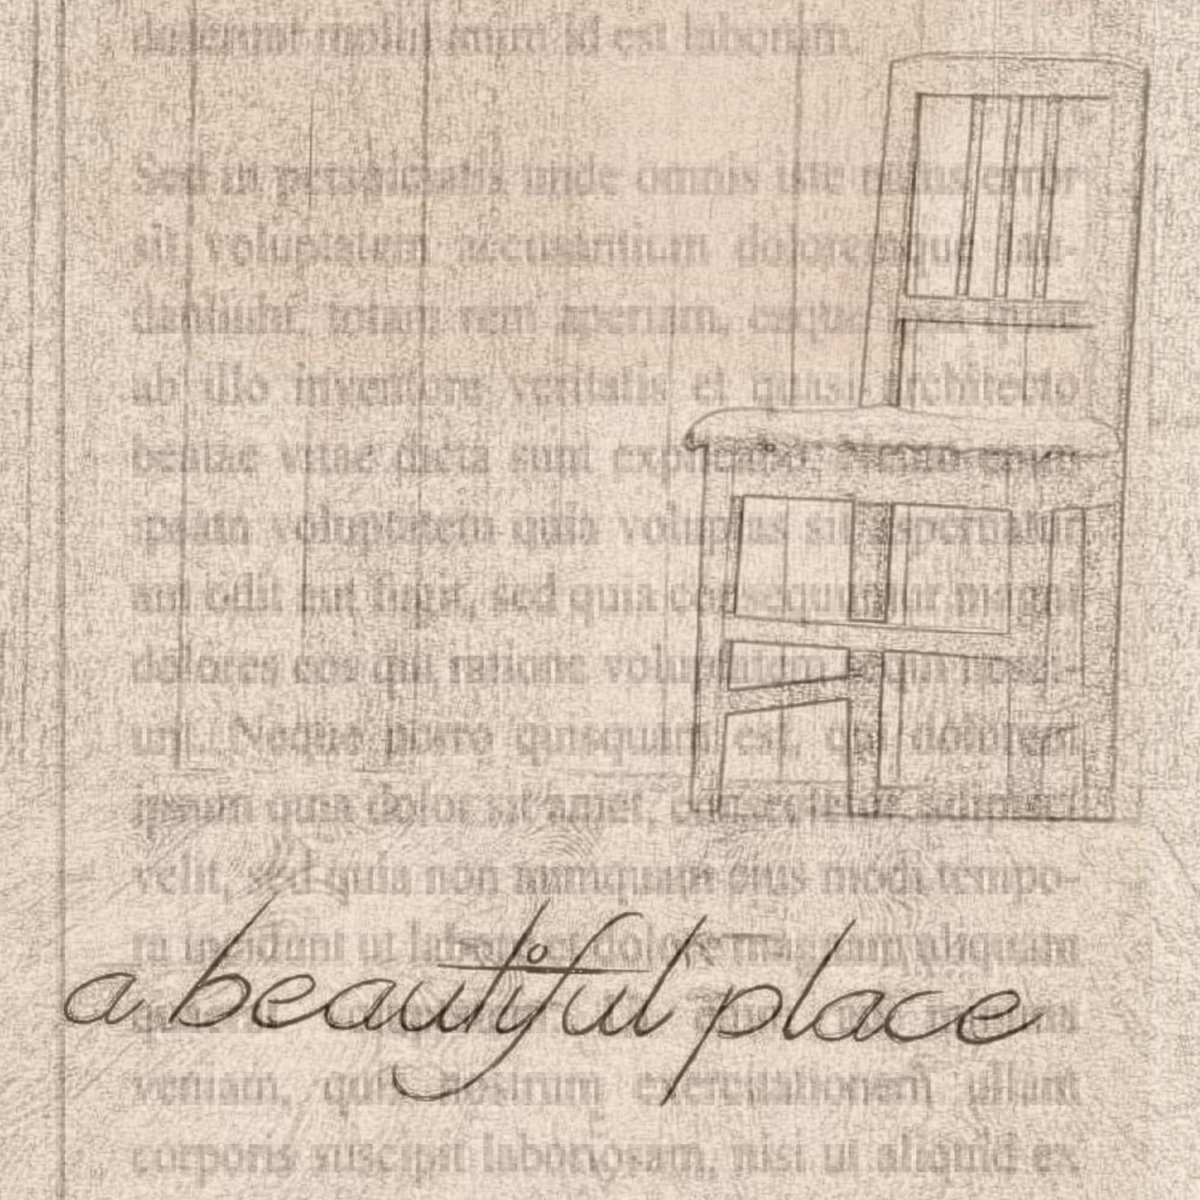 deserunt mollit anim id est laborum.
Sed ut perspiciatis unde omnis iste natus error
sit voluptatem accusantium doloremque lau-
dantium, totam rem aperiam, eaque
ab illo inventore veritatis et quasi architecto
beatae vitae dicta sunt explicabo. Nemo enim
ipsam voluptatem quia voluptas sit aspernatur
aut odit aut fugit, sed quia consequuntur magni
dolores eos qui ratione voluptatem
unt. Neque porro quisquam est, qui dolorem
ipsum quia dolor sit amet, consectetur, adipisci
velit, sed quia non numquam eius modi tempo-
ra incidunt ut labore et dolore magnam aliquam
a beautiful place
veniam, quis nostrum exercitationem ullam
corporis suscipit laboriosam, nisi ut aliquid ex